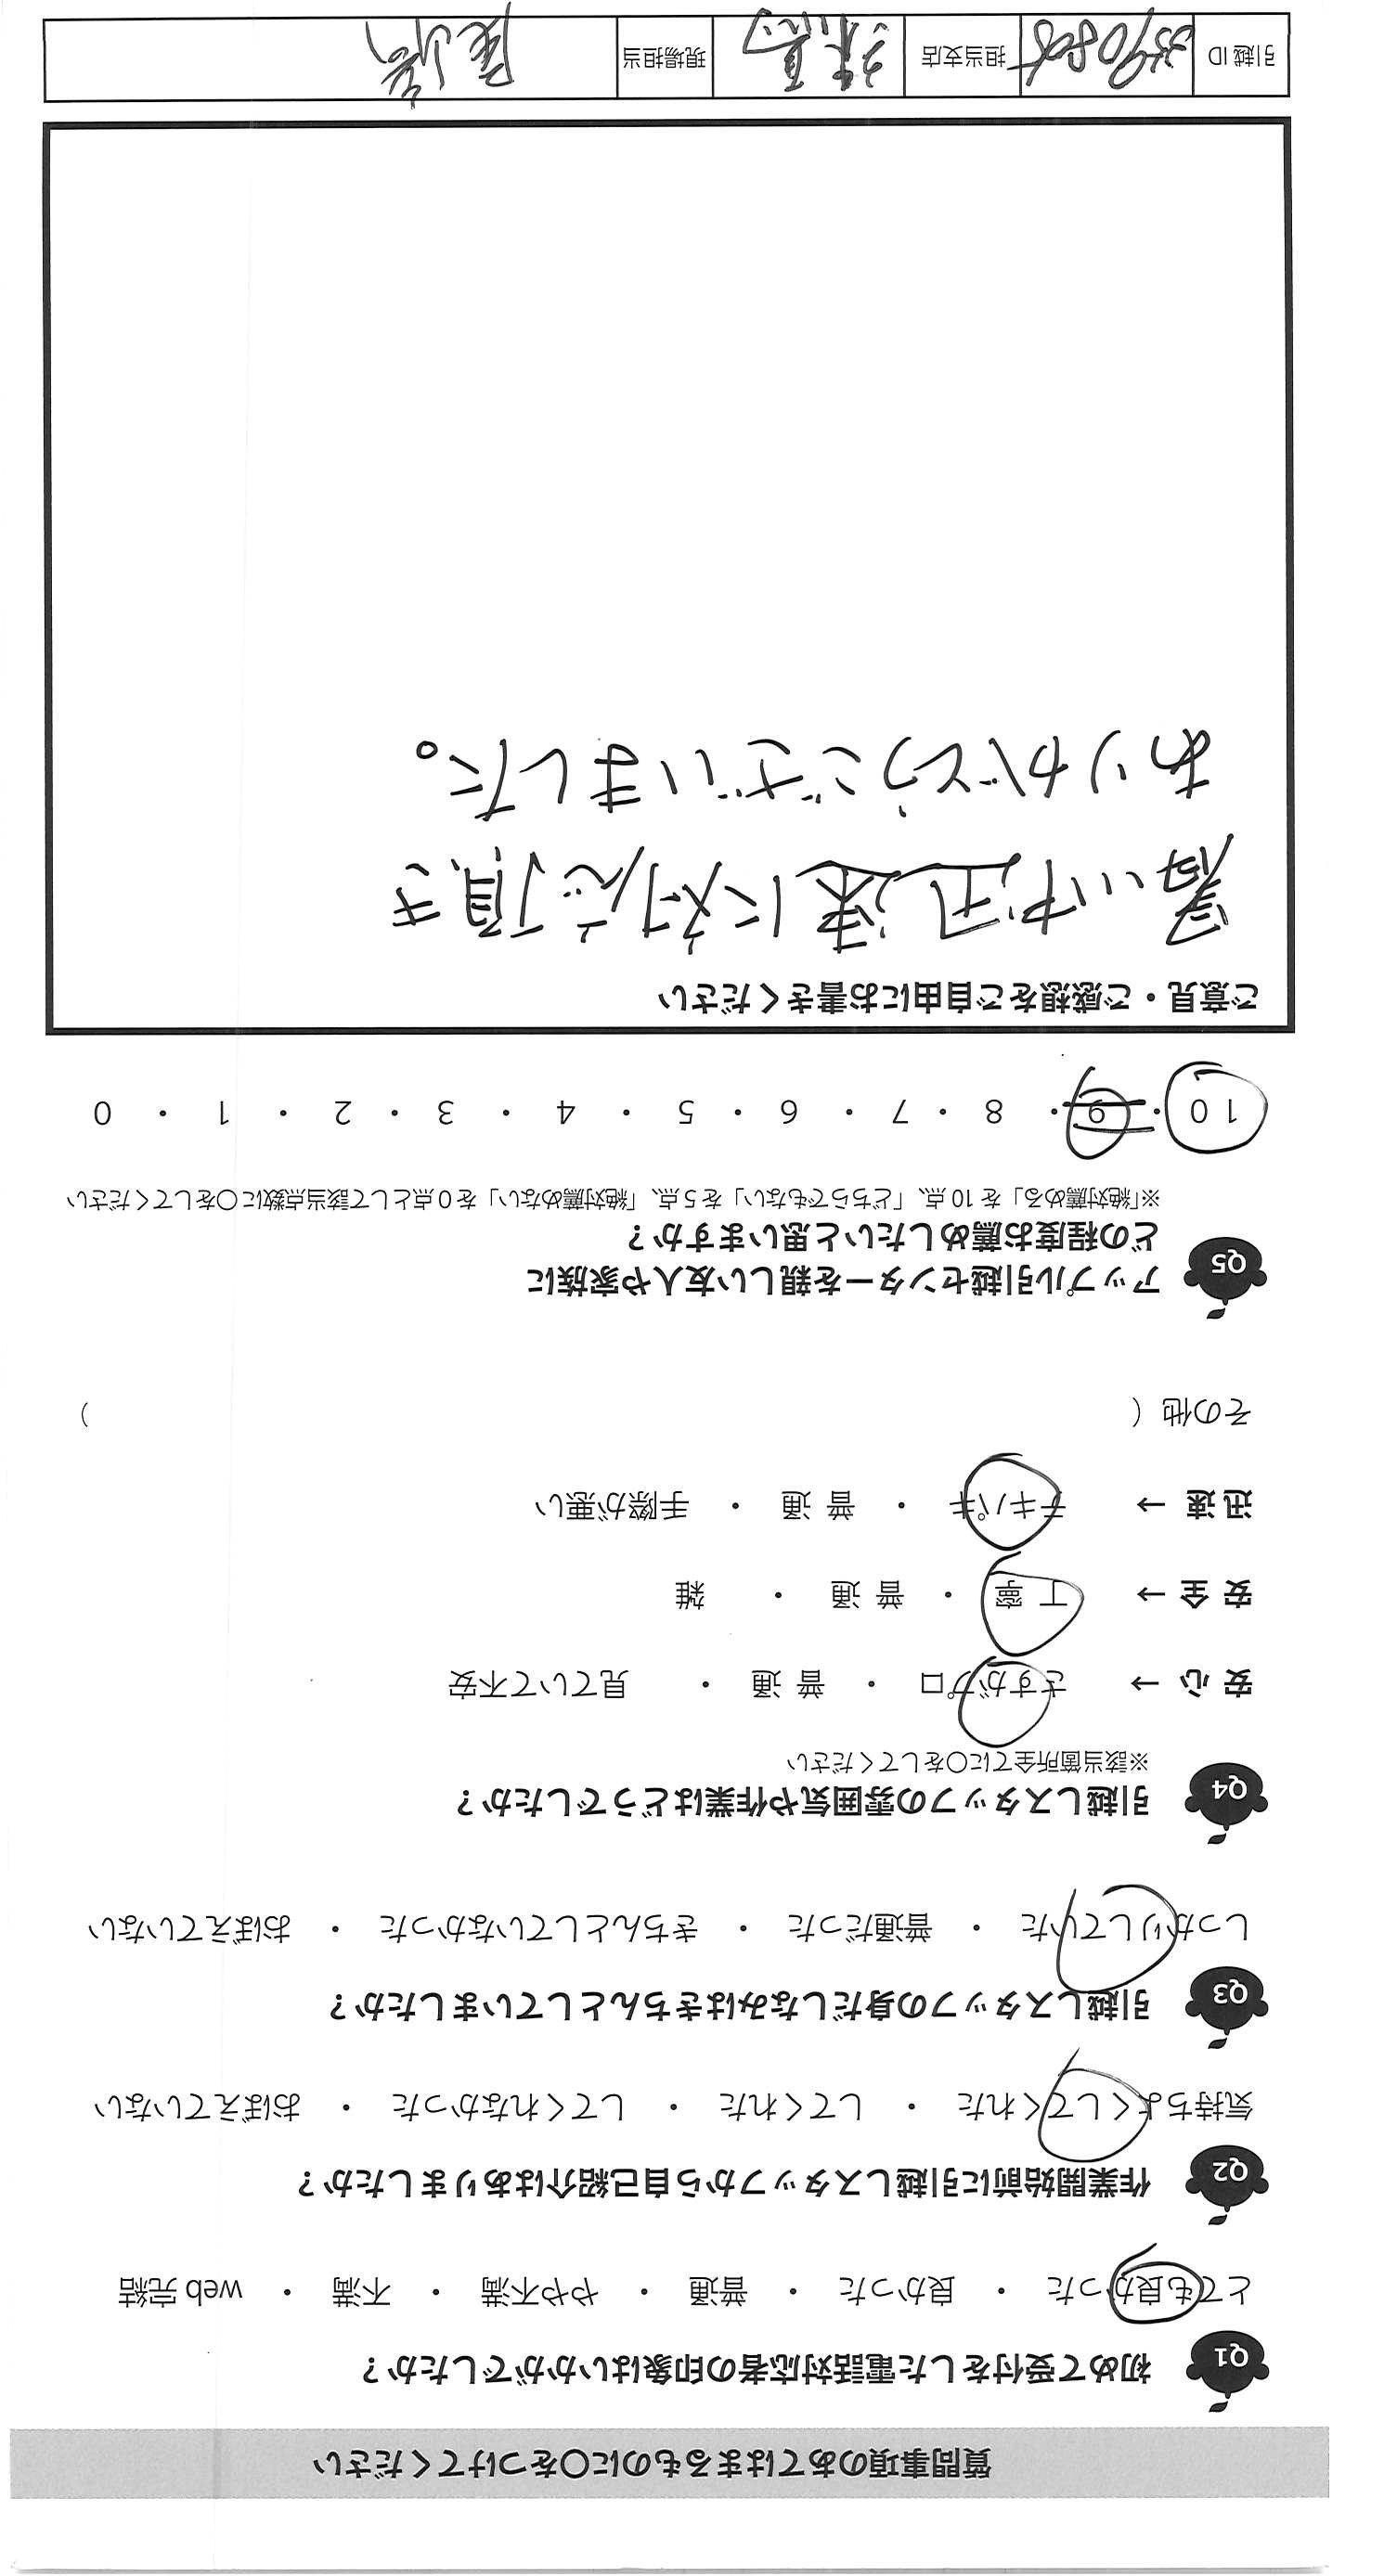 質問事項のあてはまるものに〇をつけてください
Q1 初めて受付をした電話対応者の印象はいかがでしたか？
とても良かった ・ 良かった ・ 普通 ・ やや不満 ・ 不満 ・ web 完結
Q2 作業開始前に引越しスタッフから自己紹介はありましたか？
気持ちよくしてくれた ・ してくれた ・ してくれなかった ・ おぼえていない
Q3 引越しスタッフの身だしなみはきちんとしていましたか？
しっかりしていた ・ 普通だった ・ きちんとしていなかった ・ おぼえていない
Q4 引越しスタッフの雰囲気や作業はどうでしたか？
※該当箇所全てに〇をしてください
安 心 → さすがプロ ・ 普 通 ・ 見ていて不安
安 全 → 丁 寧 ・ 普 通 ・ 雑
迅 速 → テキパキ ・ 普 通 ・ 手際が悪い
その他（ ）
Q5 アップル引越センターを親しい友人や家族に
どの程度お薦めしたいと思いますか？
※「絶対薦める」を 10 点、「どちらでもない」を 5 点、「絶対薦めない」を 0 点として該当点数に〇をしてください
10 ・ 9 ・ 8 ・ 7 ・ 6 ・ 5 ・ 4 ・ 3 ・ 2 ・ 1 ・ 0
ご意見・ご感想をご自由にお書きください
暑い中迅速に対応頂き
ありがとうございました。
引越 ID 担当支店 現場担当